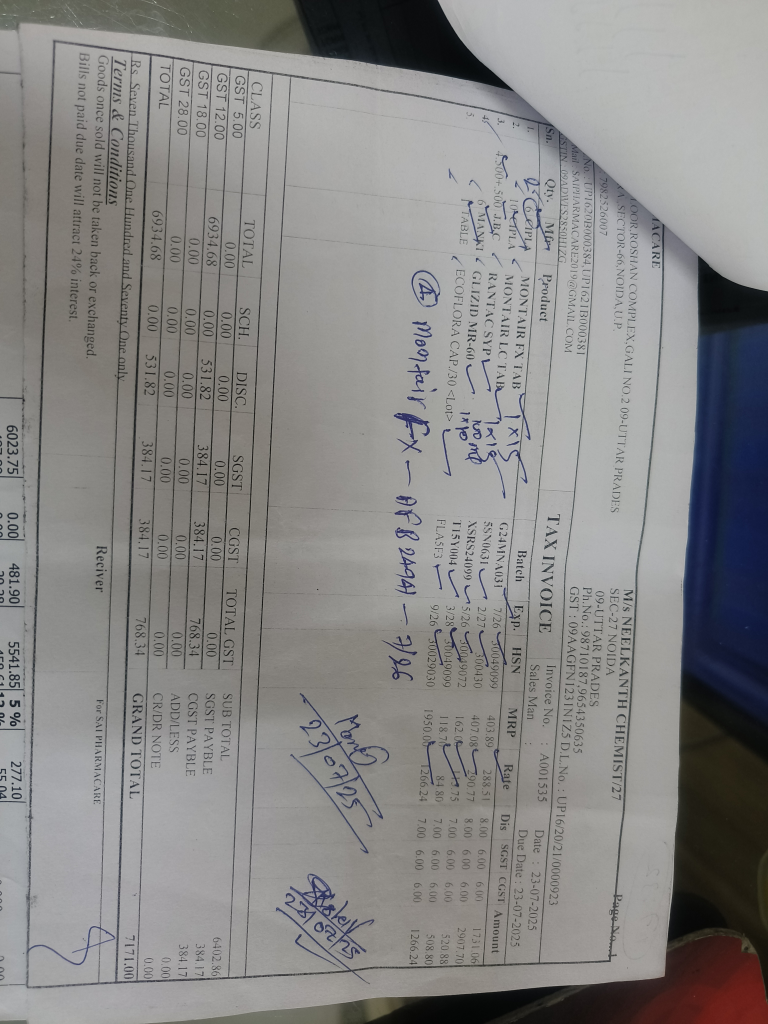 MACARE
OOR,ROSHAN COMPLEX,GALI NO.2 09-UTTAR PRADES
SECTOR-66,NOIDA,U.P.
7982526007
UP1620B000384,UP1621B000381
SAIPHARMACARE2019@GMAIL.COM
Page No...1
M/s NEELKANTH CHEMIST/27
SEC-27 NOIDA
09-UTTAR PRADES
Ph.No.: 98710187,9654350635
GST : 09AAGFN1231N1Z5 D.L.No. : UP16/20/21/0000923
TAX INVOICE
Invoice No. : A001535 Date : 23-07-2025
Sales Man : Due Date : 23-07-2025
Sn. Qty. Product Batch Exp. HSN MRP Rate Dis SGST CGST Amount
1. MONTAIR FX TAB 1x15 G24MNA031 7/26 30049099 403.89 288.51 8.00 6.00 6.00 1731.06
2. MONTAIR LC TAB 1x15 5SN0631 2/27 300430 407.08 290.77 8.00 6.00 6.00 2907.70
3. 4.500+.500 J.B.C RANTAC SYP 100 ml XSRS24099 5/26 30049072 7.00 6.00 6.00 520.88
4. 6 MANKI GLIZID MR-60 1x10 T15Y004 3/28 30049099 84.80 7.00 6.00 6.00 508.80
5. ECOFLORA CAP./30 <Lot> FLA5F3 9/26 30029030 1266.24 7.00 6.00 6.00 1266.24
Montair FX — 7/26
23/07/25
CLASS TOTAL SCH. DISC. SGST CGST TOTAL GST
GST 5.00 0.00 0.00 0.00 0.00 0.00 0.00
GST 12.00 6934.68 0.00 531.82 384.17 384.17 768.34
GST 18.00 0.00 0.00 0.00 0.00 0.00 0.00
GST 28.00 0.00 0.00 0.00 0.00 0.00 0.00
TOTAL 6934.68 0.00 531.82 384.17 384.17 768.34
SUB TOTAL 6402.86
SGST PAYBLE 384.17
CGST PAYBLE 384.17
ADD/LESS 0.00
CR/DR NOTE 0.00
Rs. Seven Thousand One Hundred and Seventy One only
GRAND TOTAL 7171.00
Terms & Conditions
Goods once sold will not be taken back or exchanged.
Bills not paid due date will attract 24% interest.
Reciver
For SAI PHARMACARE
6023.75 0.00 481.90 5541.85 5 % 277.10